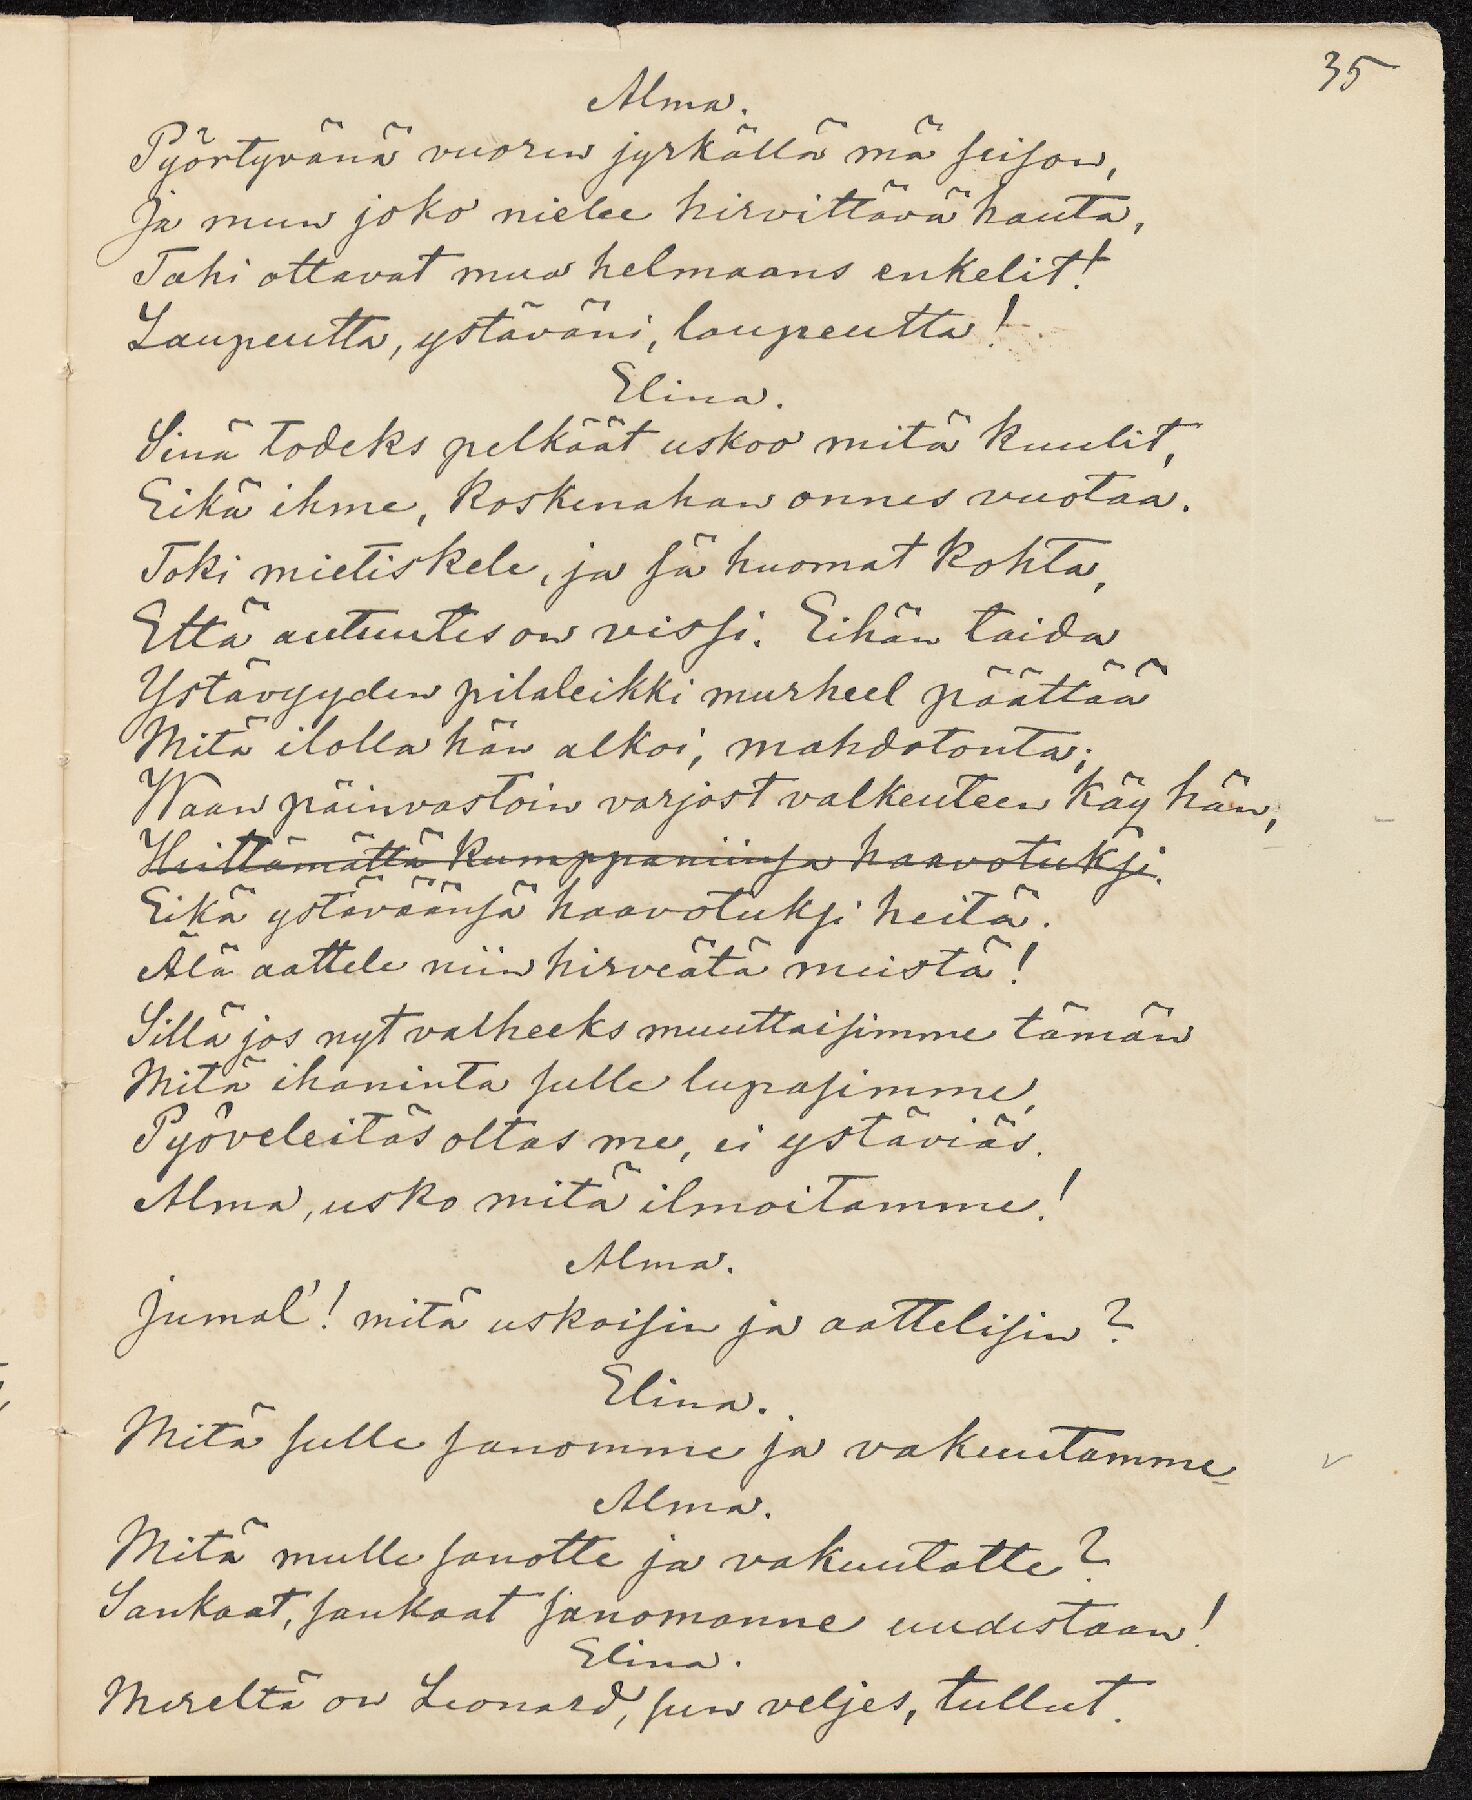 35
Alma.
Pyörtyvänä vuoren jyrkällä mä seison,
Ja mun joko nielee hirvittävä hauta,
Tahi ottavat mua helmaans enkelit!
Laupeutta, ystäväni, laupeutta!
Elina.
Sinä todeks pelkäät uskoo mitä kuulit,
Eikä ihme, koskenahan onnes vuotaa.
Toki mietiskele, ja sä huomat kohta,
Että autuutes on vissi. Eihän taida
Ystävyyden pilaleikki murheel päättää
Mitä ilolla hän alkoi, mahdotonta;
Waan päinvastoin varjost valkeuteen käy hän,
Heittämättä kumppaniinsa haavotuksi.
Eikä ystäväänsä haavotuksi heitä.
Älä aattele niin hirveätä meistä!
Sillä jos nyt valheeks muuttaisimme tämän
Mitä ihaninta sulle lupasimme,
Pyöveleitäs oltas me, ei ystäviäs.
Alma, usko mitä ilmoitamme!
Alma.
Jumal'! mitä uskoisin ja aattelisin?
Elina.
Mitä sulle sanomme ja vakuutamme
Alma.
Mitä mulle sanotte ja vakuutatte?
Sankaat, sankaat sanomanne uudestaan!
Elina.
Mereltä on Leonard, sun veljes, tullut.